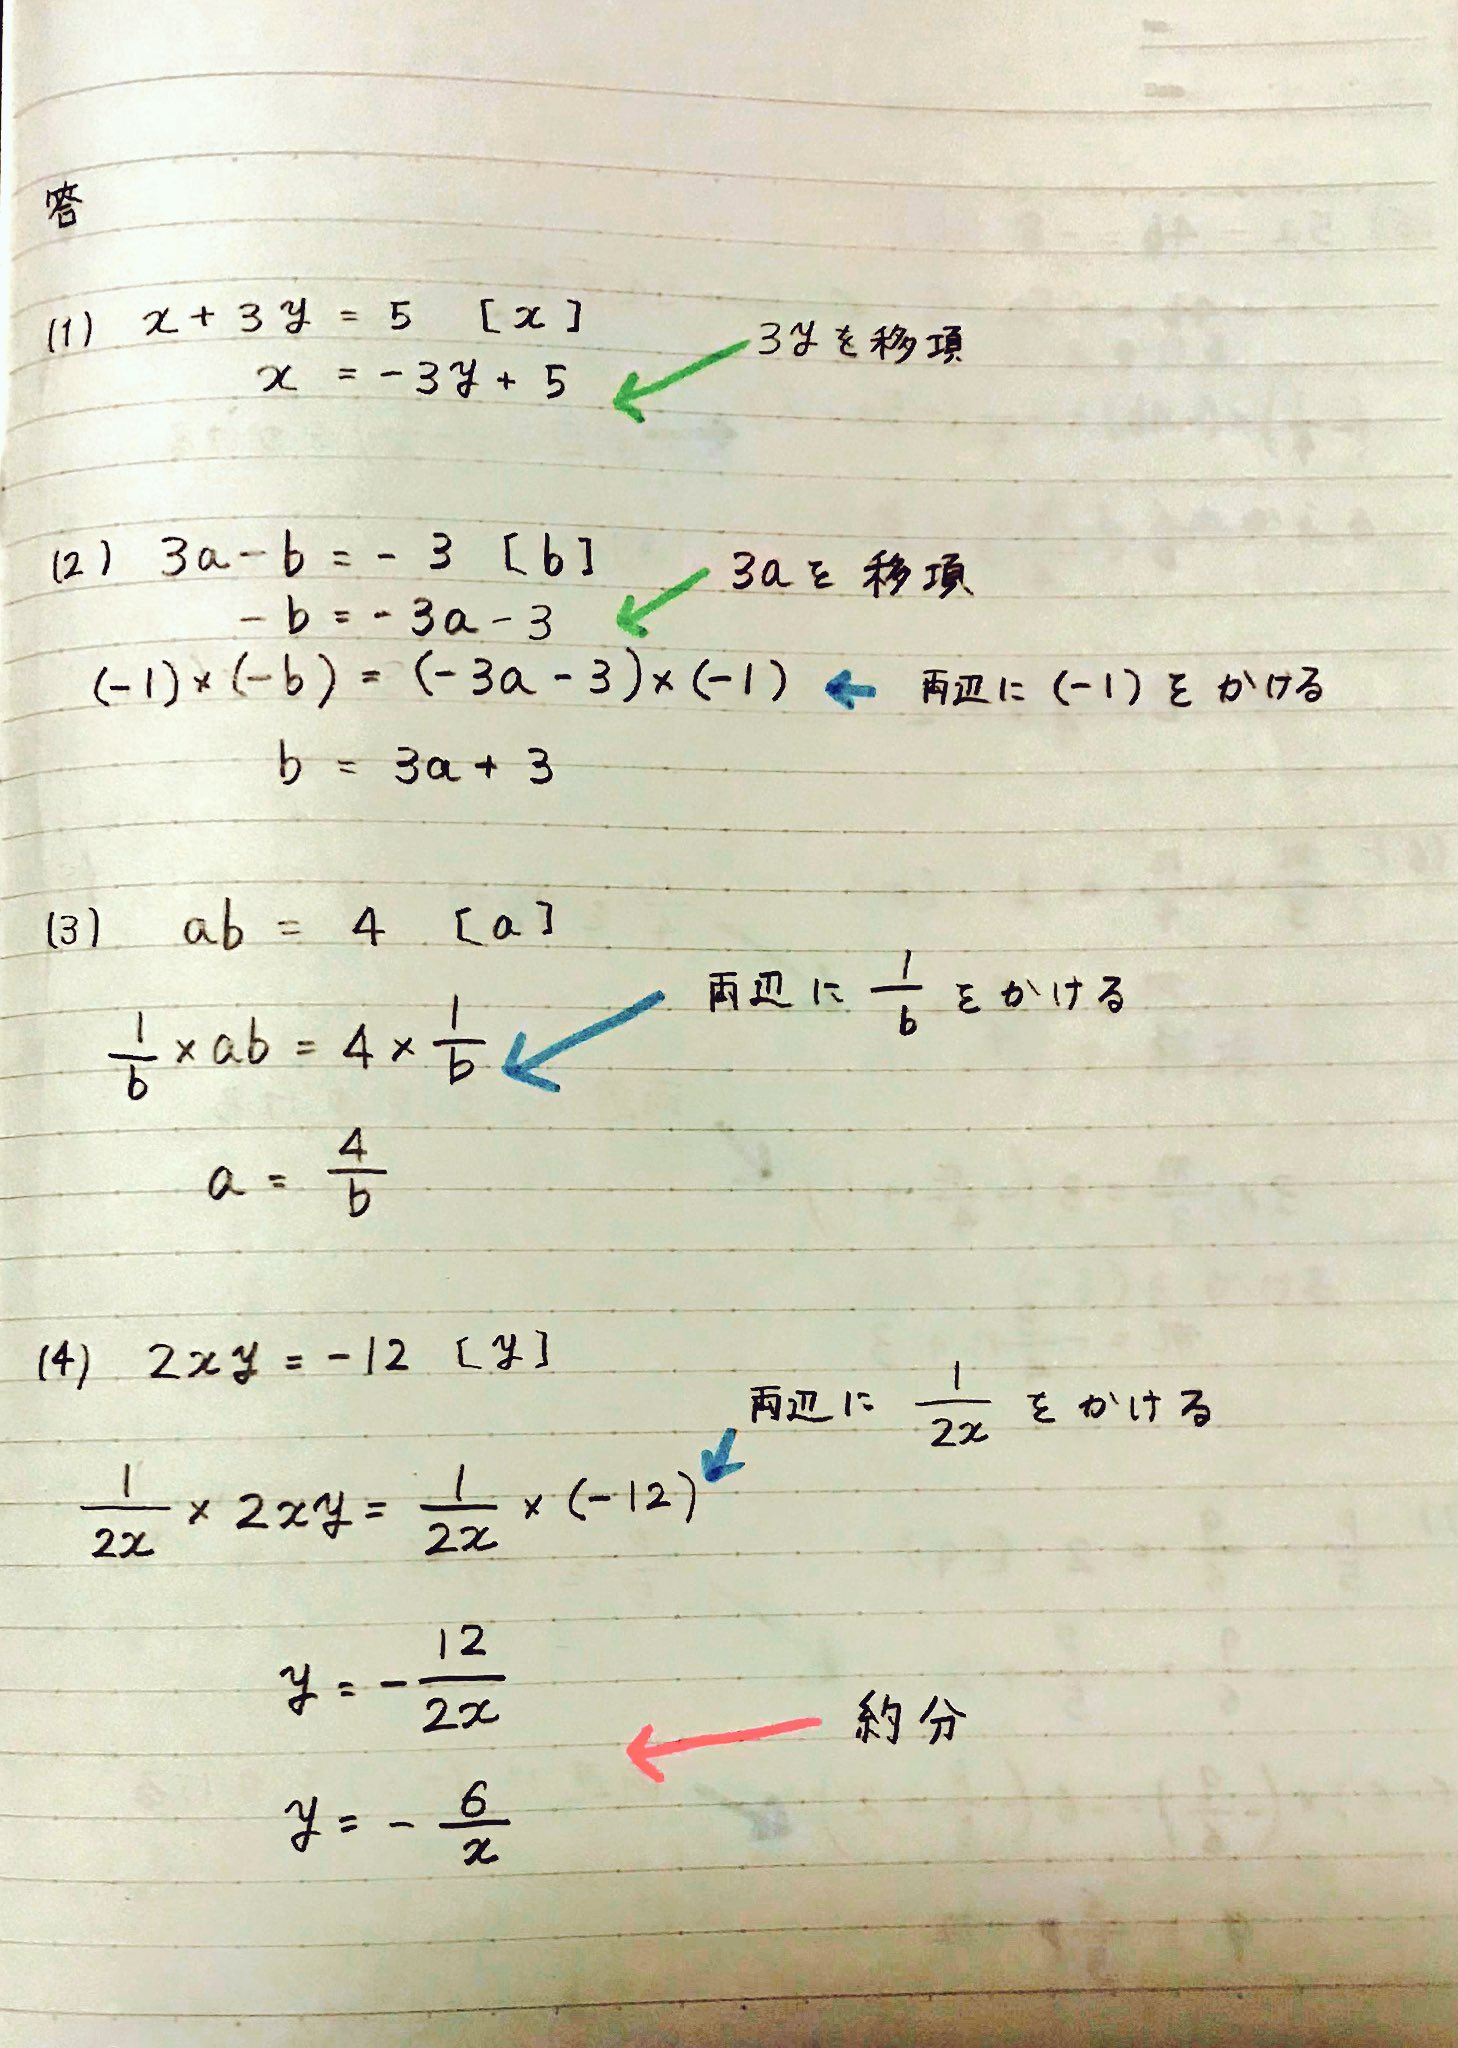 答
(1) x + 3y = 5 [x]
3yを移項
x = -3y + 5
(2) 3a - b = - 3 [b]
3aを移項
- b = - 3a - 3
(-1) × (-b) = (-3a - 3) × (-1)
両辺に (-1) をかける
b = 3a + 3
(3) ab = 4 [a]
両辺に 1/b をかける
1/b × ab = 4 × 1/b
a = 4/b
(4) 2xy = -12 [y]
両辺に 1/2x をかける
1/2x × 2xy = 1/2x × (-12)
y = - 12/2x
約分
y = - 6/x